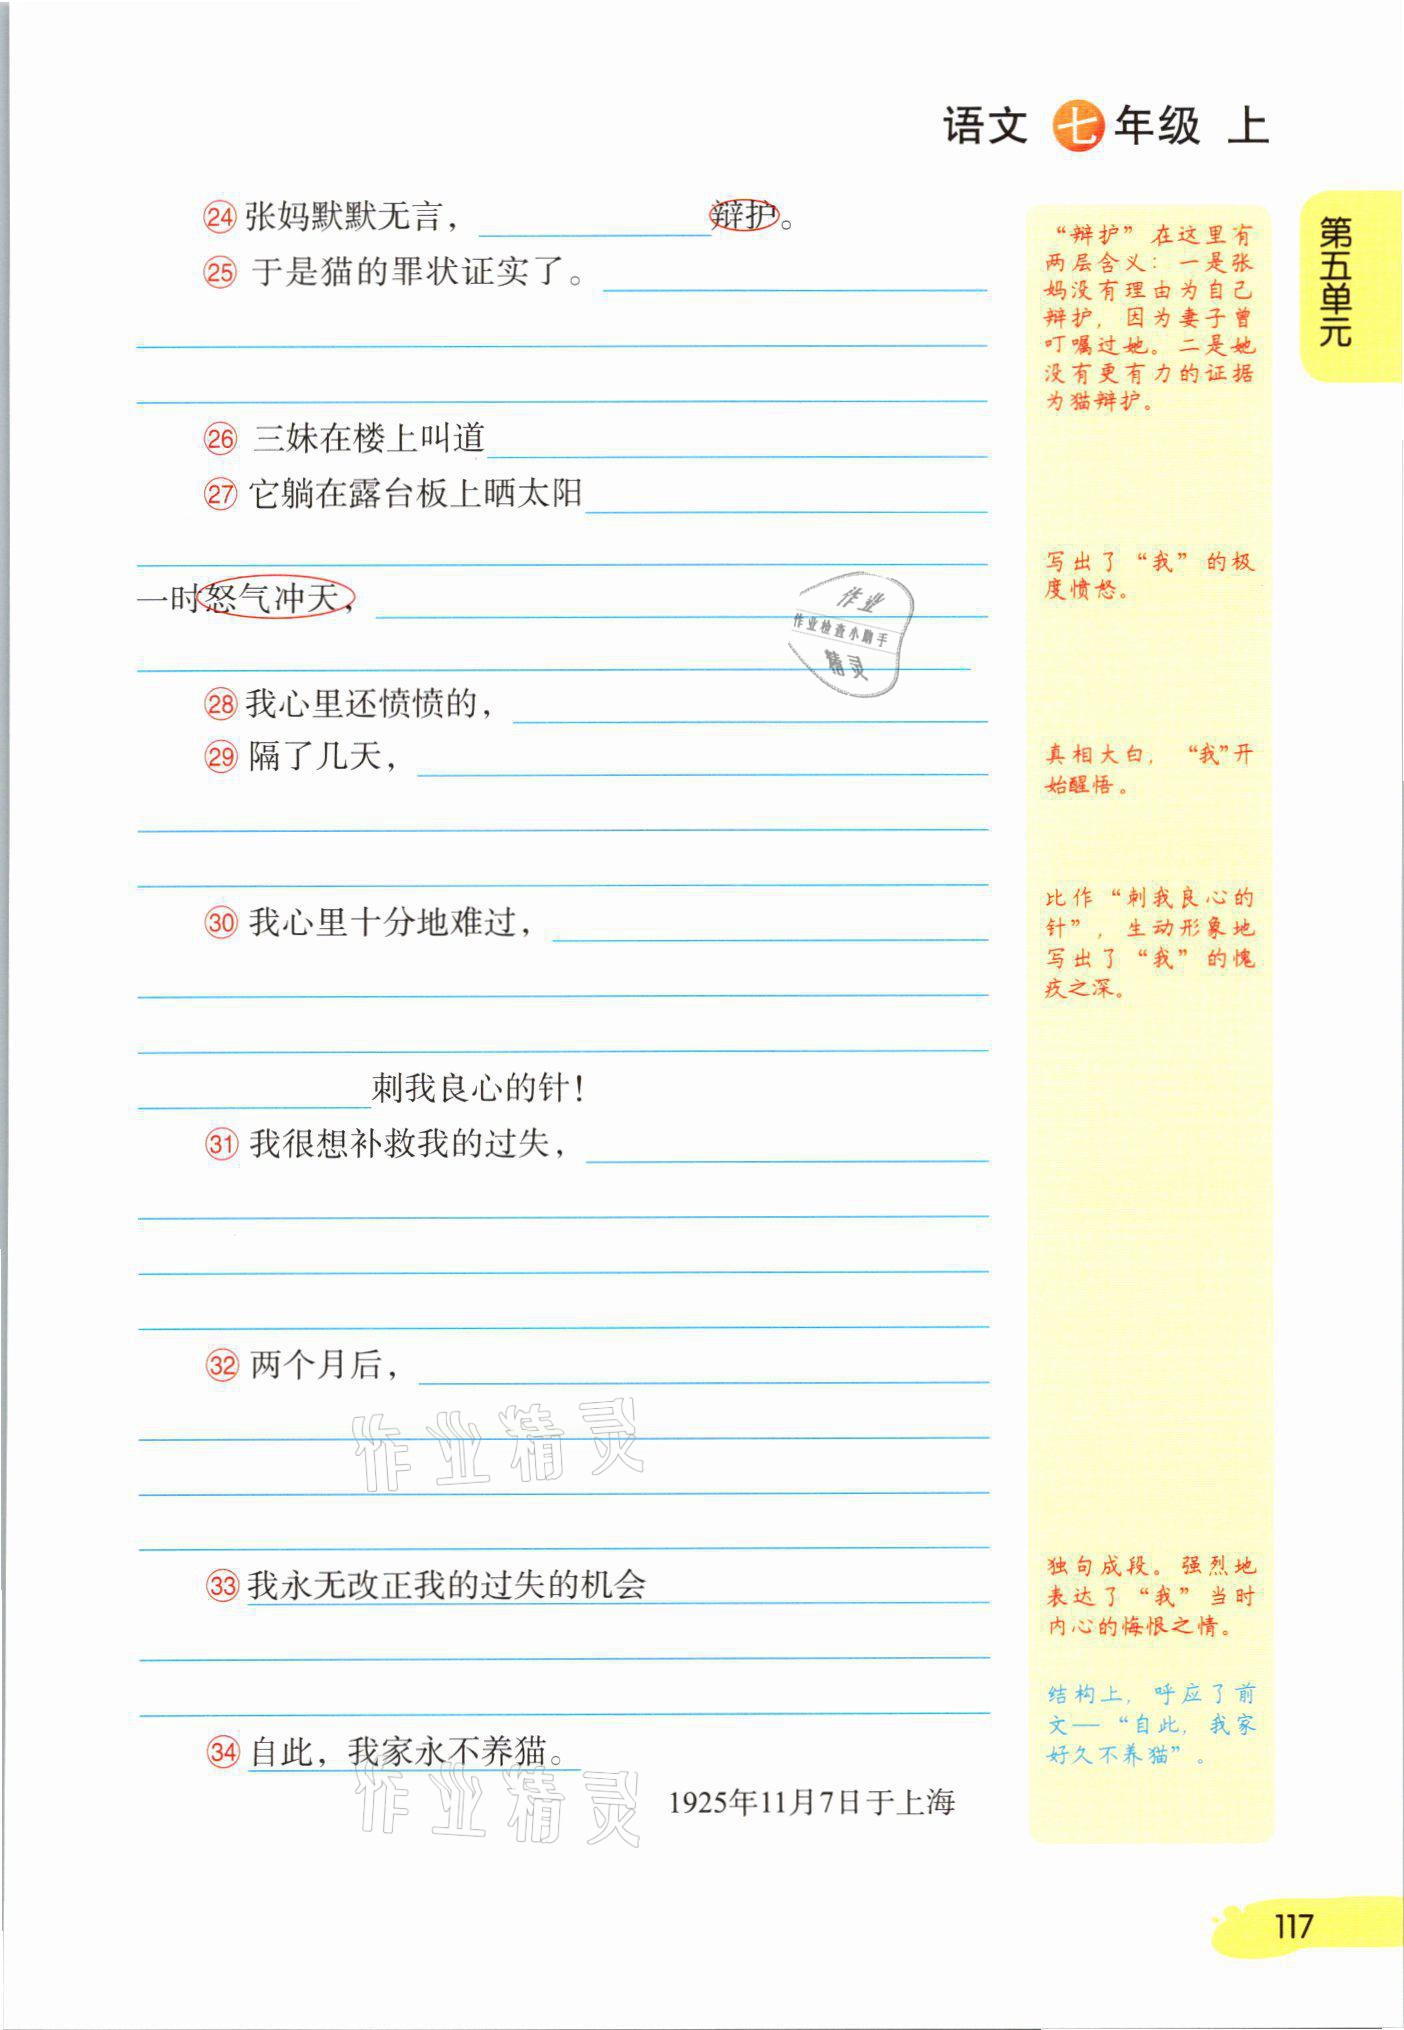 语文 七年级 上
第五单元
㉔ 张妈默默无言，辩护。
㉕ 于是猫的罪状证实了。
㉖ 三妹在楼上叫道
㉗ 它躺在露台板上晒太阳
一时怒气冲天，
㉘ 我心里还愤愤的，
㉙ 隔了几天，
㉚ 我心里十分地难过，
刺我良心的针！
㉛ 我很想补救我的过失，
㉜ 两个月后，
㉝ 我永无改正我的过失的机会
㉞ 自此，我家永不养猫。
1925年11月7日于上海
“辩护”在这里有
两层含义：一是张
妈没有理由为自己
辩护，因为妻子曾
叮嘱过她。二是她
没有更有力的证据
为猫辩护。
写出了“我”的极
度愤怒。
真相大白，“我”开
始醒悟。
比作“刺我良心的
针”，生动形象地
写出了“我”的愧
疚之深。
独句成段。强烈地
表达了“我”当时
内心的悔恨之情。
结构上，呼应了前
文—“自此，我家
好久不养猫”。
作业
作业检查小助手
精灵
作业精灵
作业精灵
117